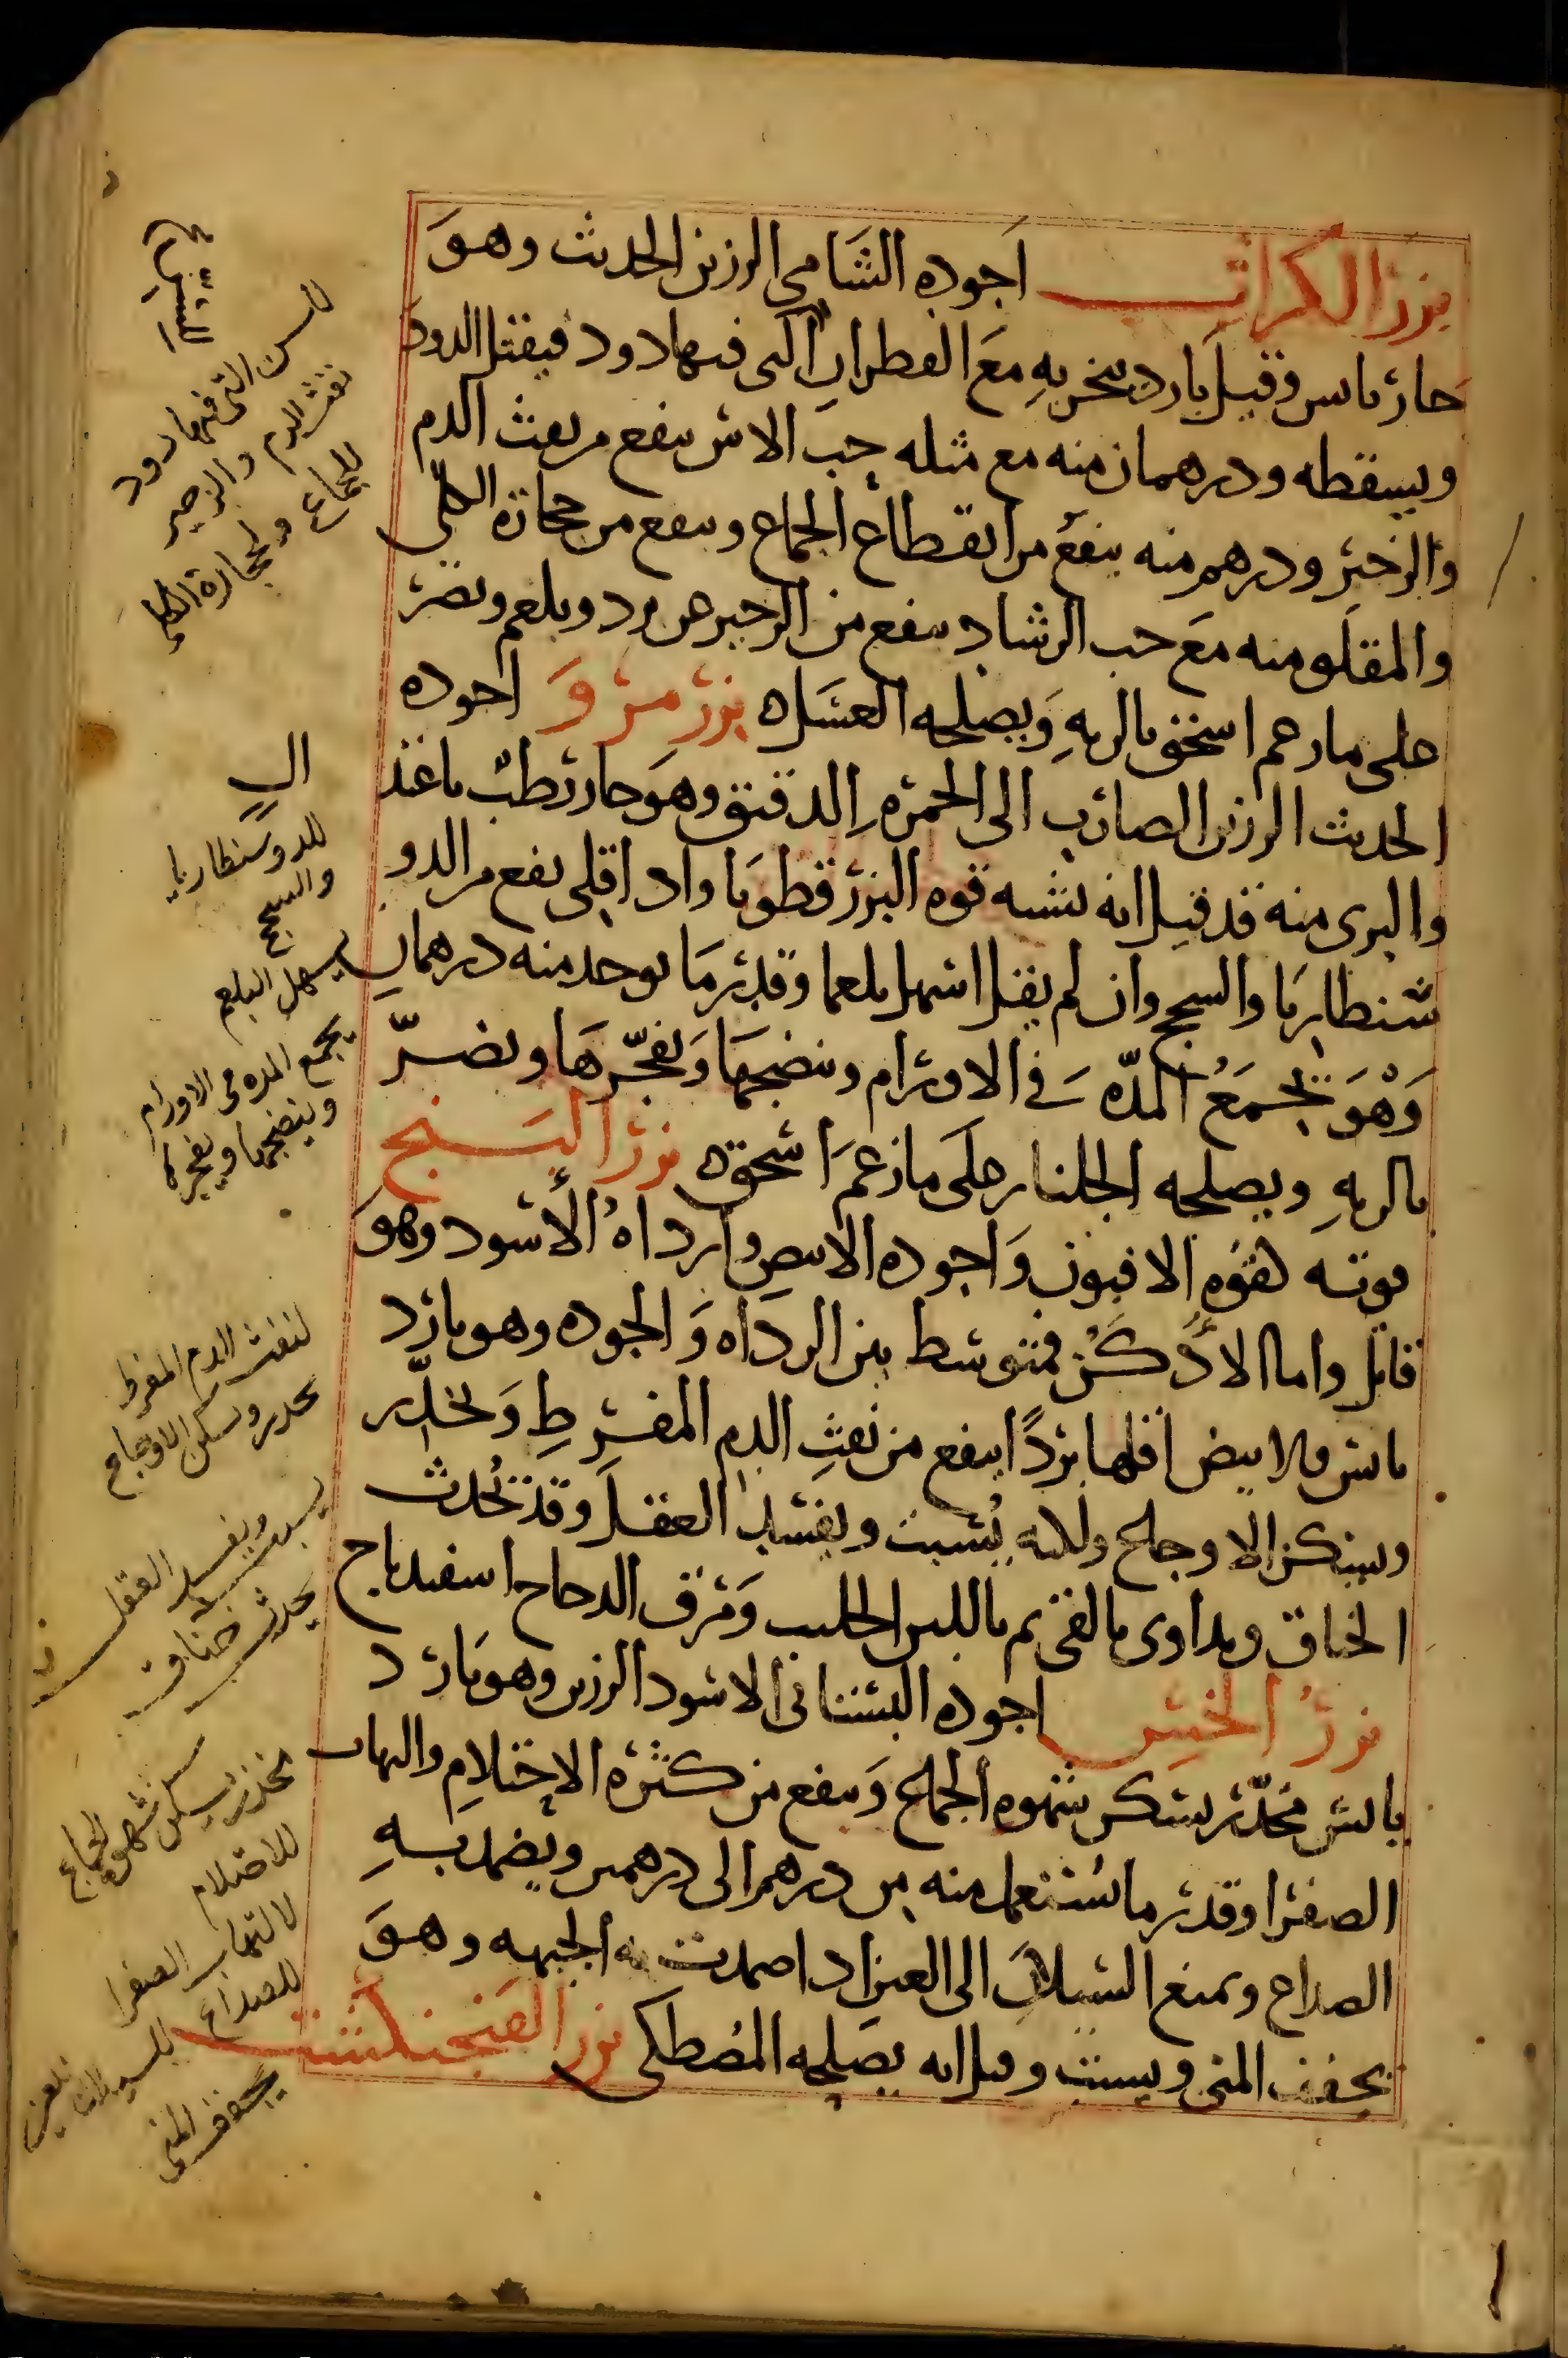 بزر الكراث اجوده الشامي الرزين الحديث وهو
حار يابس وقيل بارد يتبخر به مع القطران التي فيها دود فيقتل الدود
ويسقطه ودرهمان منه مع مثله حب الاس ينفع من نفث الدم
والزحير ودرهم منه ينفع من انقطاع الجماع وينفع من حجارة الكلي
والمقلو منه مع حب الرشاد ينفع من الزحير عن برد وبلغم ويضر
على ما زعم اسحق بالريه ويصلحه العسل ه بزر مرو اجوده
الحديث الرزين الضارب الى الحمره الدقيق وهو حار رطب باغذ
والبرى منه قد قيل انه يشبه قوه البزر قطونا واذا قلى نفع من الدو
سنطاريا والسحج وان لم يقل اسهل بلغما وقدر ما يوخذ منه درهمان
وهو يجمع المدّه في الاورام وينضجها ويفجّرها ويضرّ
بالريه ويصلحه الجلنار على ما زعم اسحق ه بزر البنج
قوته كقوه الافيون واجوده الابيض وارداه الأسود وهو
قاتل واما الادكن فمتوسط بين الرداه والجوده وهو بارد
يابس والابيض اقلها بردًا ينفع من نفث الدم المفرط ويخدّر
ويسكن الاوجاع ولانه يسبت ويفسد العقل وقد يحدث
الخناق ويداوى بالقئ ثم باللبن الحليب ومرق الدجاج اسفيدباج
بزر الخس اجوده البستاني الاسود الرزين وهو بارد
يابس مخدّر يسكن شهوه الجماع وينفع من كثره الاحتلام والتهاب
الصفرا وقدر ما يستعمل منه من درهم الى درهمين ويضمد به
الصداع ويمنع السيلان الى العين اذا ضمدت به الجبهه وهو
يجفف المنى ويسبت وقيل انه يصلحه المصطكى بزر الفنجنكشت
للسن التي فيها دود
نفث الدم والزحير
للجماع ولحجارة الكلي
للدوسنطاريا
والسحج
يسهل البلغم
يجمع المده في الاورام
وينضجها ويفجرها
لنفث الدم المفرط
يخدر ويسكن الاوجاع
يسبت ويفسد العقل
يحدث خناق
مخدر يسكن شهوة الجماع
للاحتلام
لالتهاب الصفرا
للصداع
للسيلان للعين
يجفف المنى